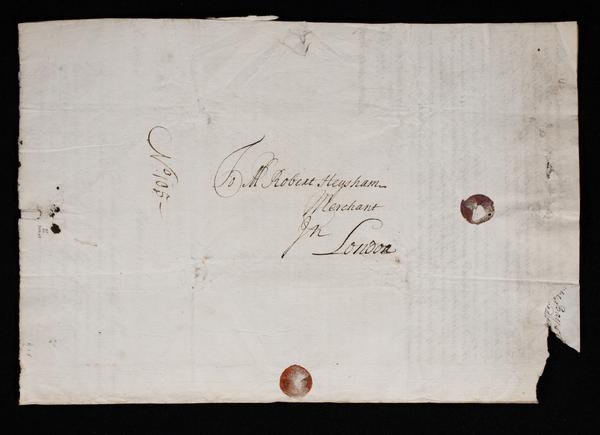 To Mr Robert Heysham
Merchant
In
London
No 105